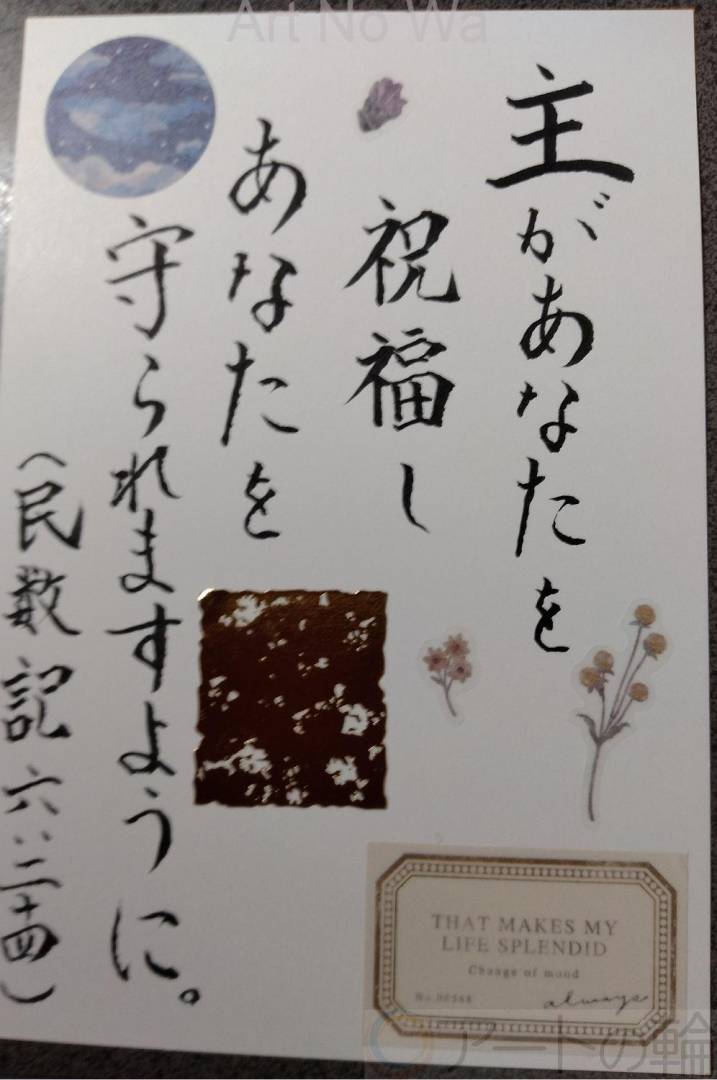 Art No Wa
主があなたを
祝福し
あなたを
守られますように。
(民数記六:二十四)
THAT MAKES MY
LIFE SPLENDID
Change of mood
always
アートの輪